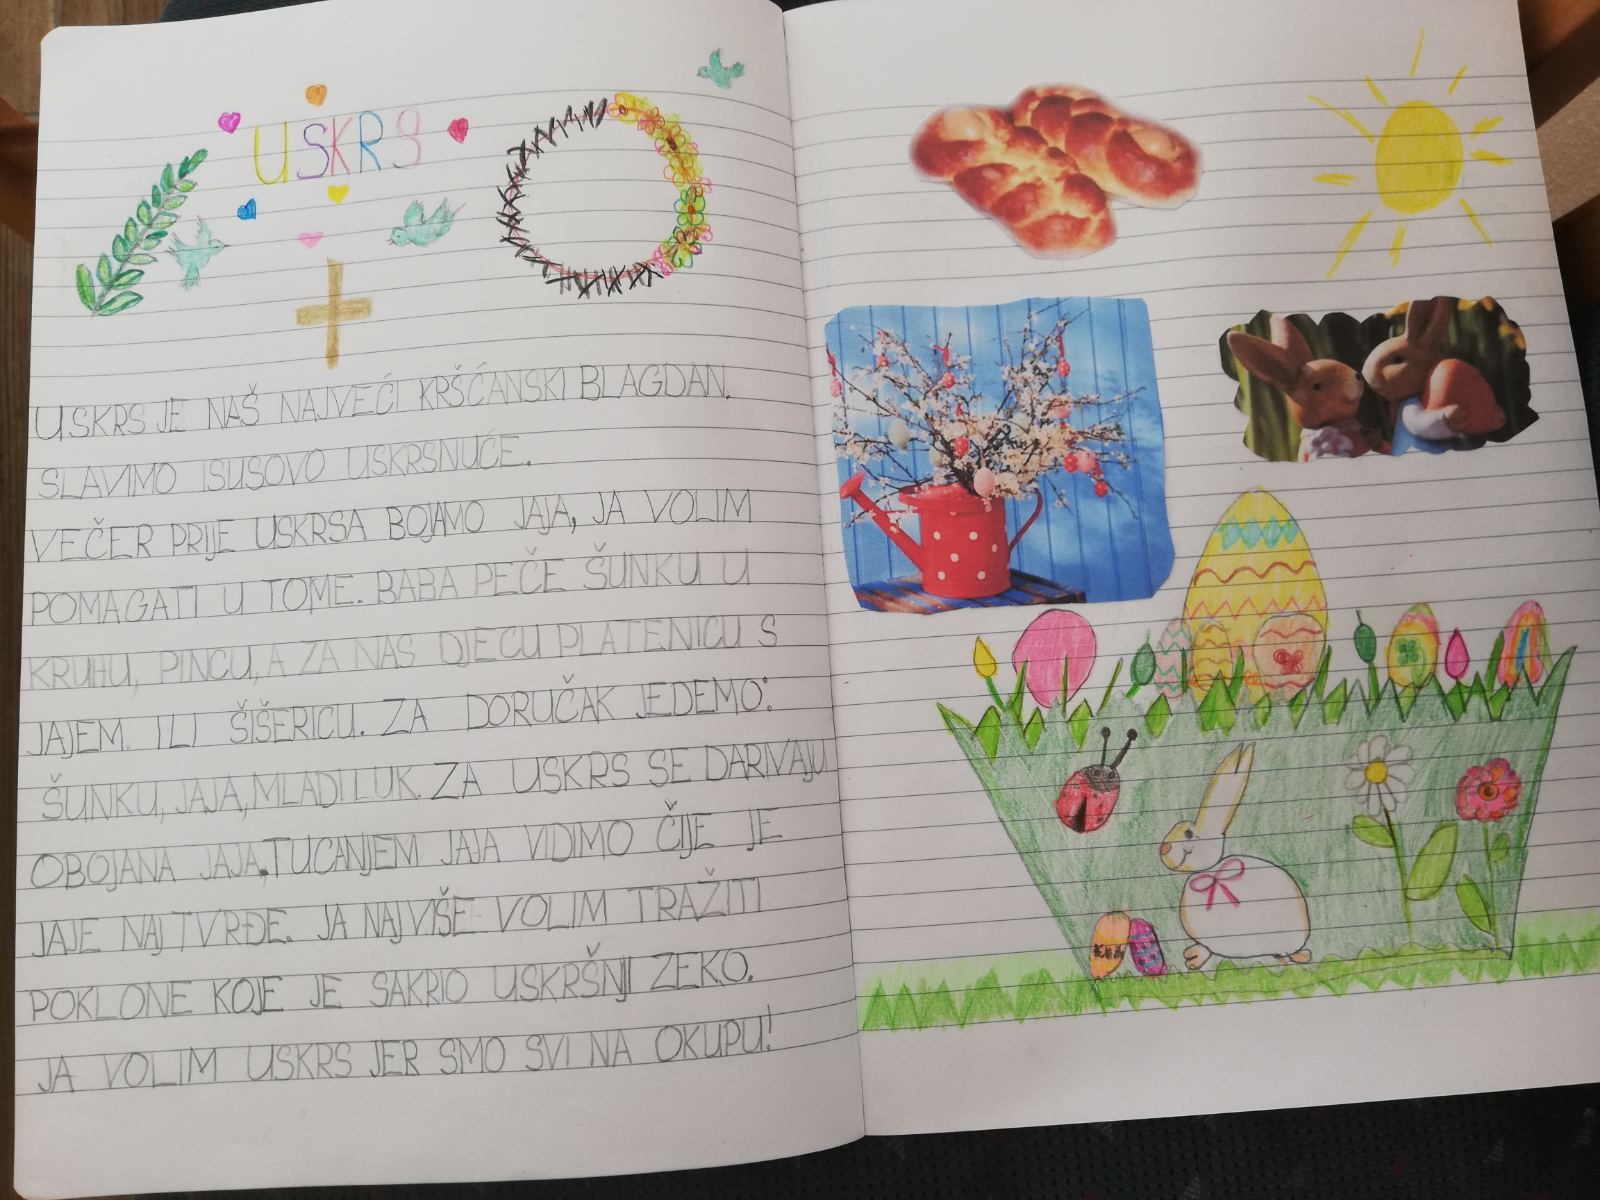 USKRS
USKRS JE NAŠ NAJVEĆI KRŠĆANSKI BLAGDAN.
SLAVIMO ISUSOVO USKRSNUĆE.
VEČER PRIJE USKRSA BOJAMO JAJA, JA VOLIM
POMAGATI U TOME. BABA PEČE ŠUNKU U
KRUHU, PINCU, A ZA NAS DJECU PLATENICU S
JAJEM ILI ŠIŠERICU. ZA DORUČAK JEDEMO:
ŠUNKU, JAJA, MLADI LUK. ZA USKRS SE DARIVAJU
OBOJANA JAJA, TUCANJEM JAJA VIDIMO ČIJE JE
JAJE NAJ TVRĐE. JA NAJVIŠE VOLIM TRAŽITI
POKLONE KOJE JE SAKRIO USKRŠNJI ZEKO.
JA VOLIM USKRS JER SMO SVI NA OKUPU!